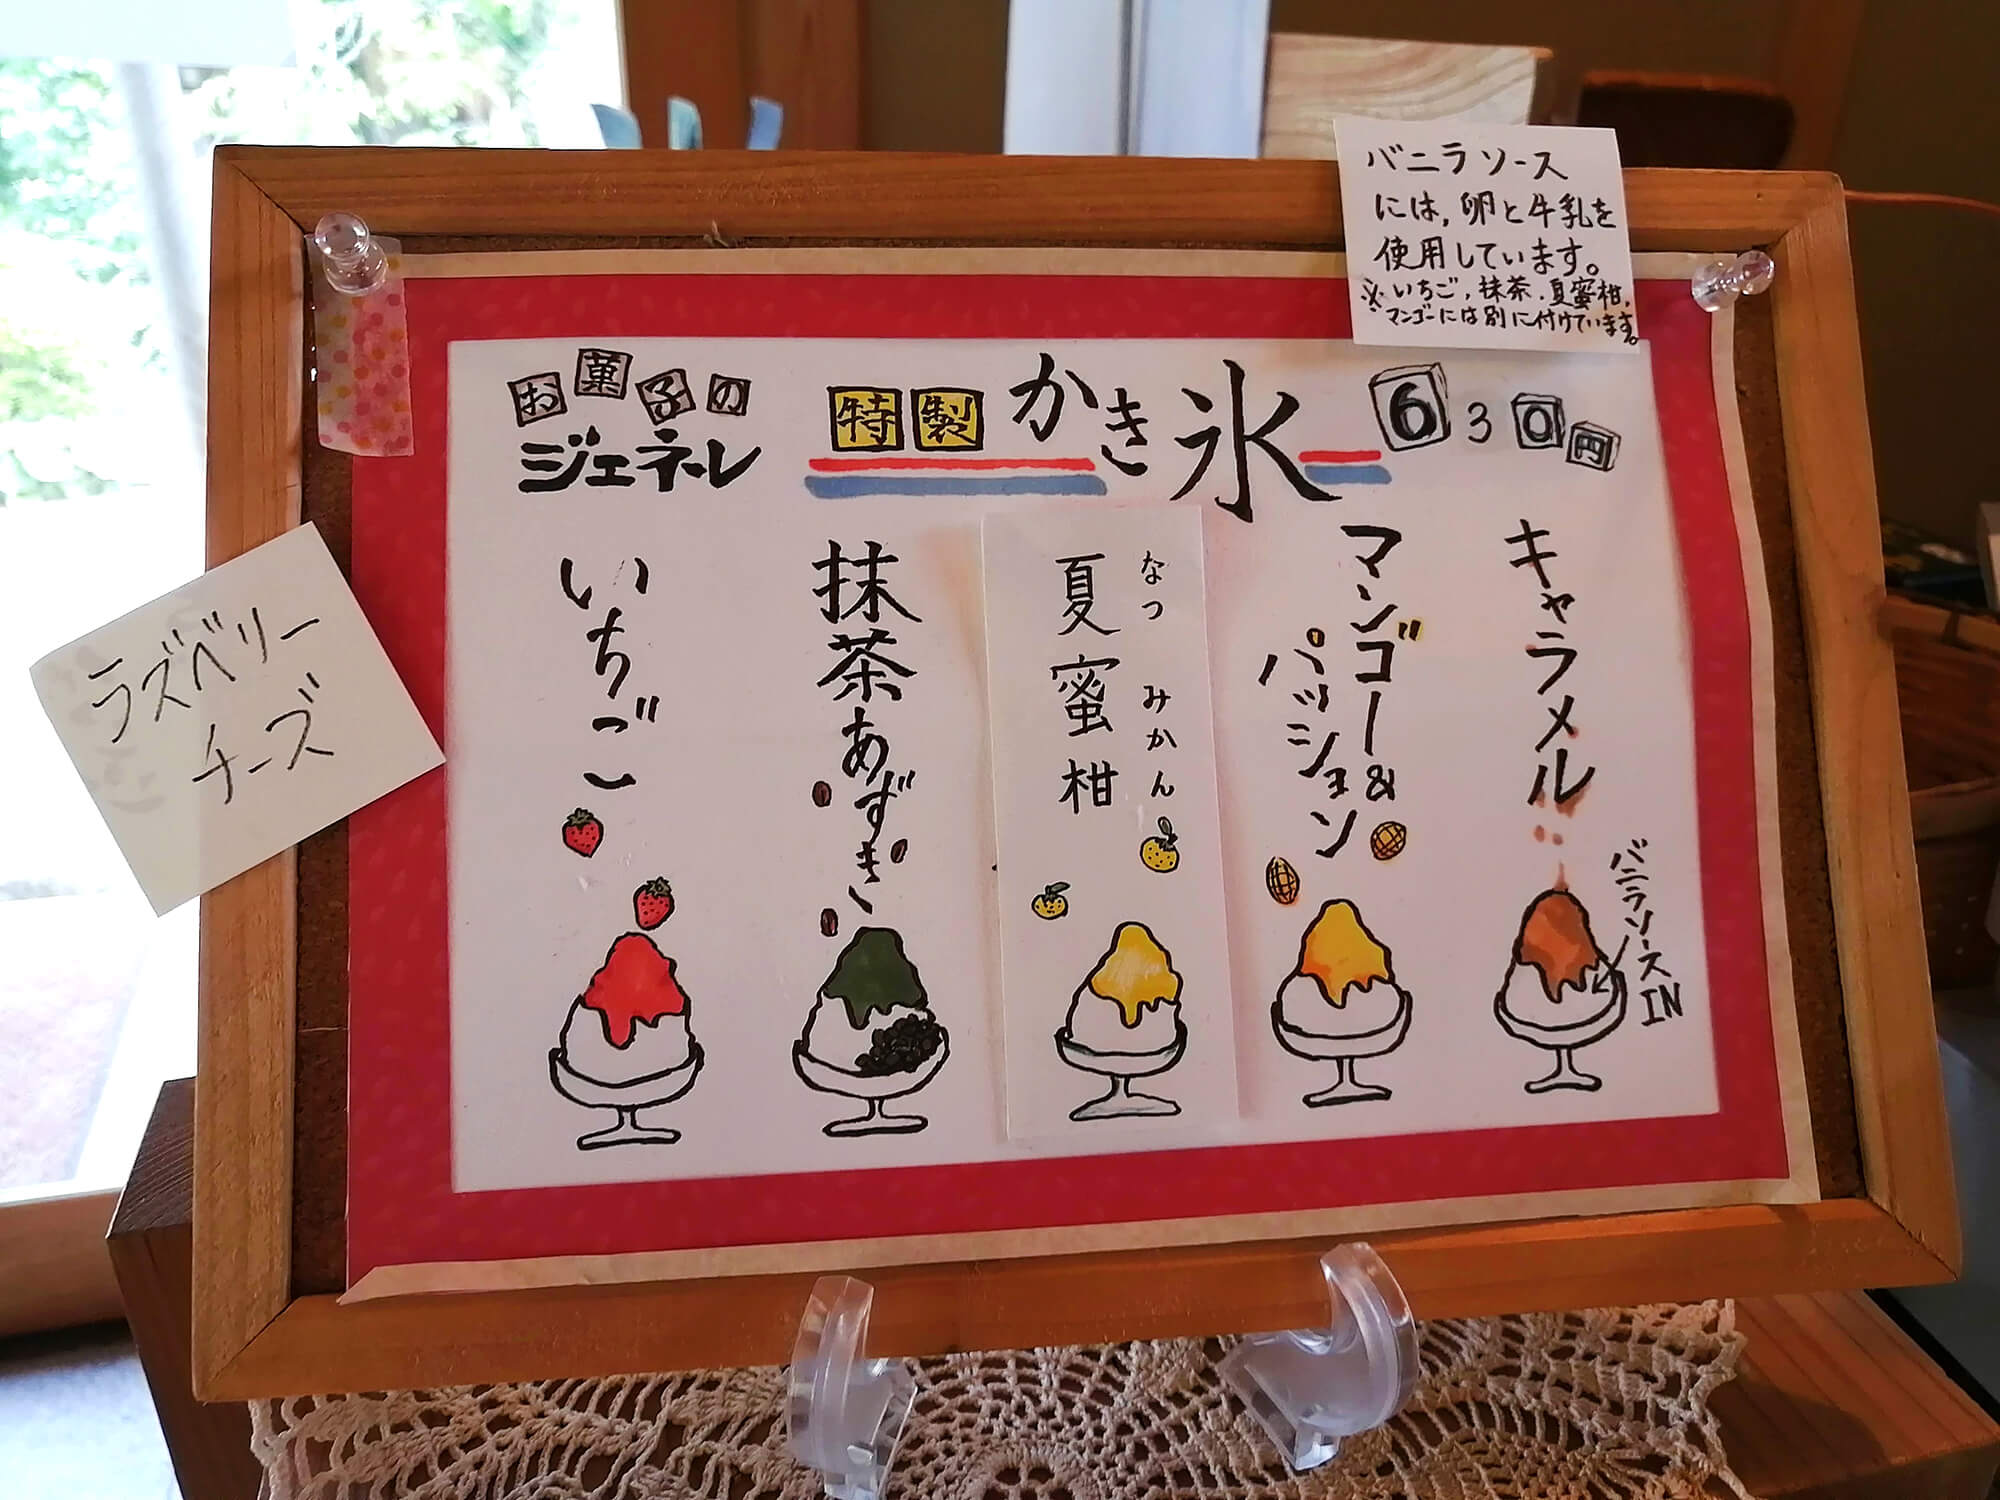 バニラソース
には,卵と牛乳を
使用しています。
※いちご,抹茶.夏蜜柑,
マンゴーには別に付けています。
お菓子の
ジェネーレ
特製かき氷
630円
ラズベリー
チーズ
いちご
抹茶あずき
夏蜜柑
なつみかん
マンゴー&
パッション
キャラメル
バニラソースIN